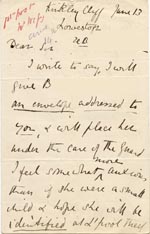 June 13
Dear Sir
I write to say, I will
give B
an envelope addressed to
you, & will place her
under the care of the Guard
I feel somewhat more anxious,
than if she were a small
child & hope she will be
identified at L'pool they